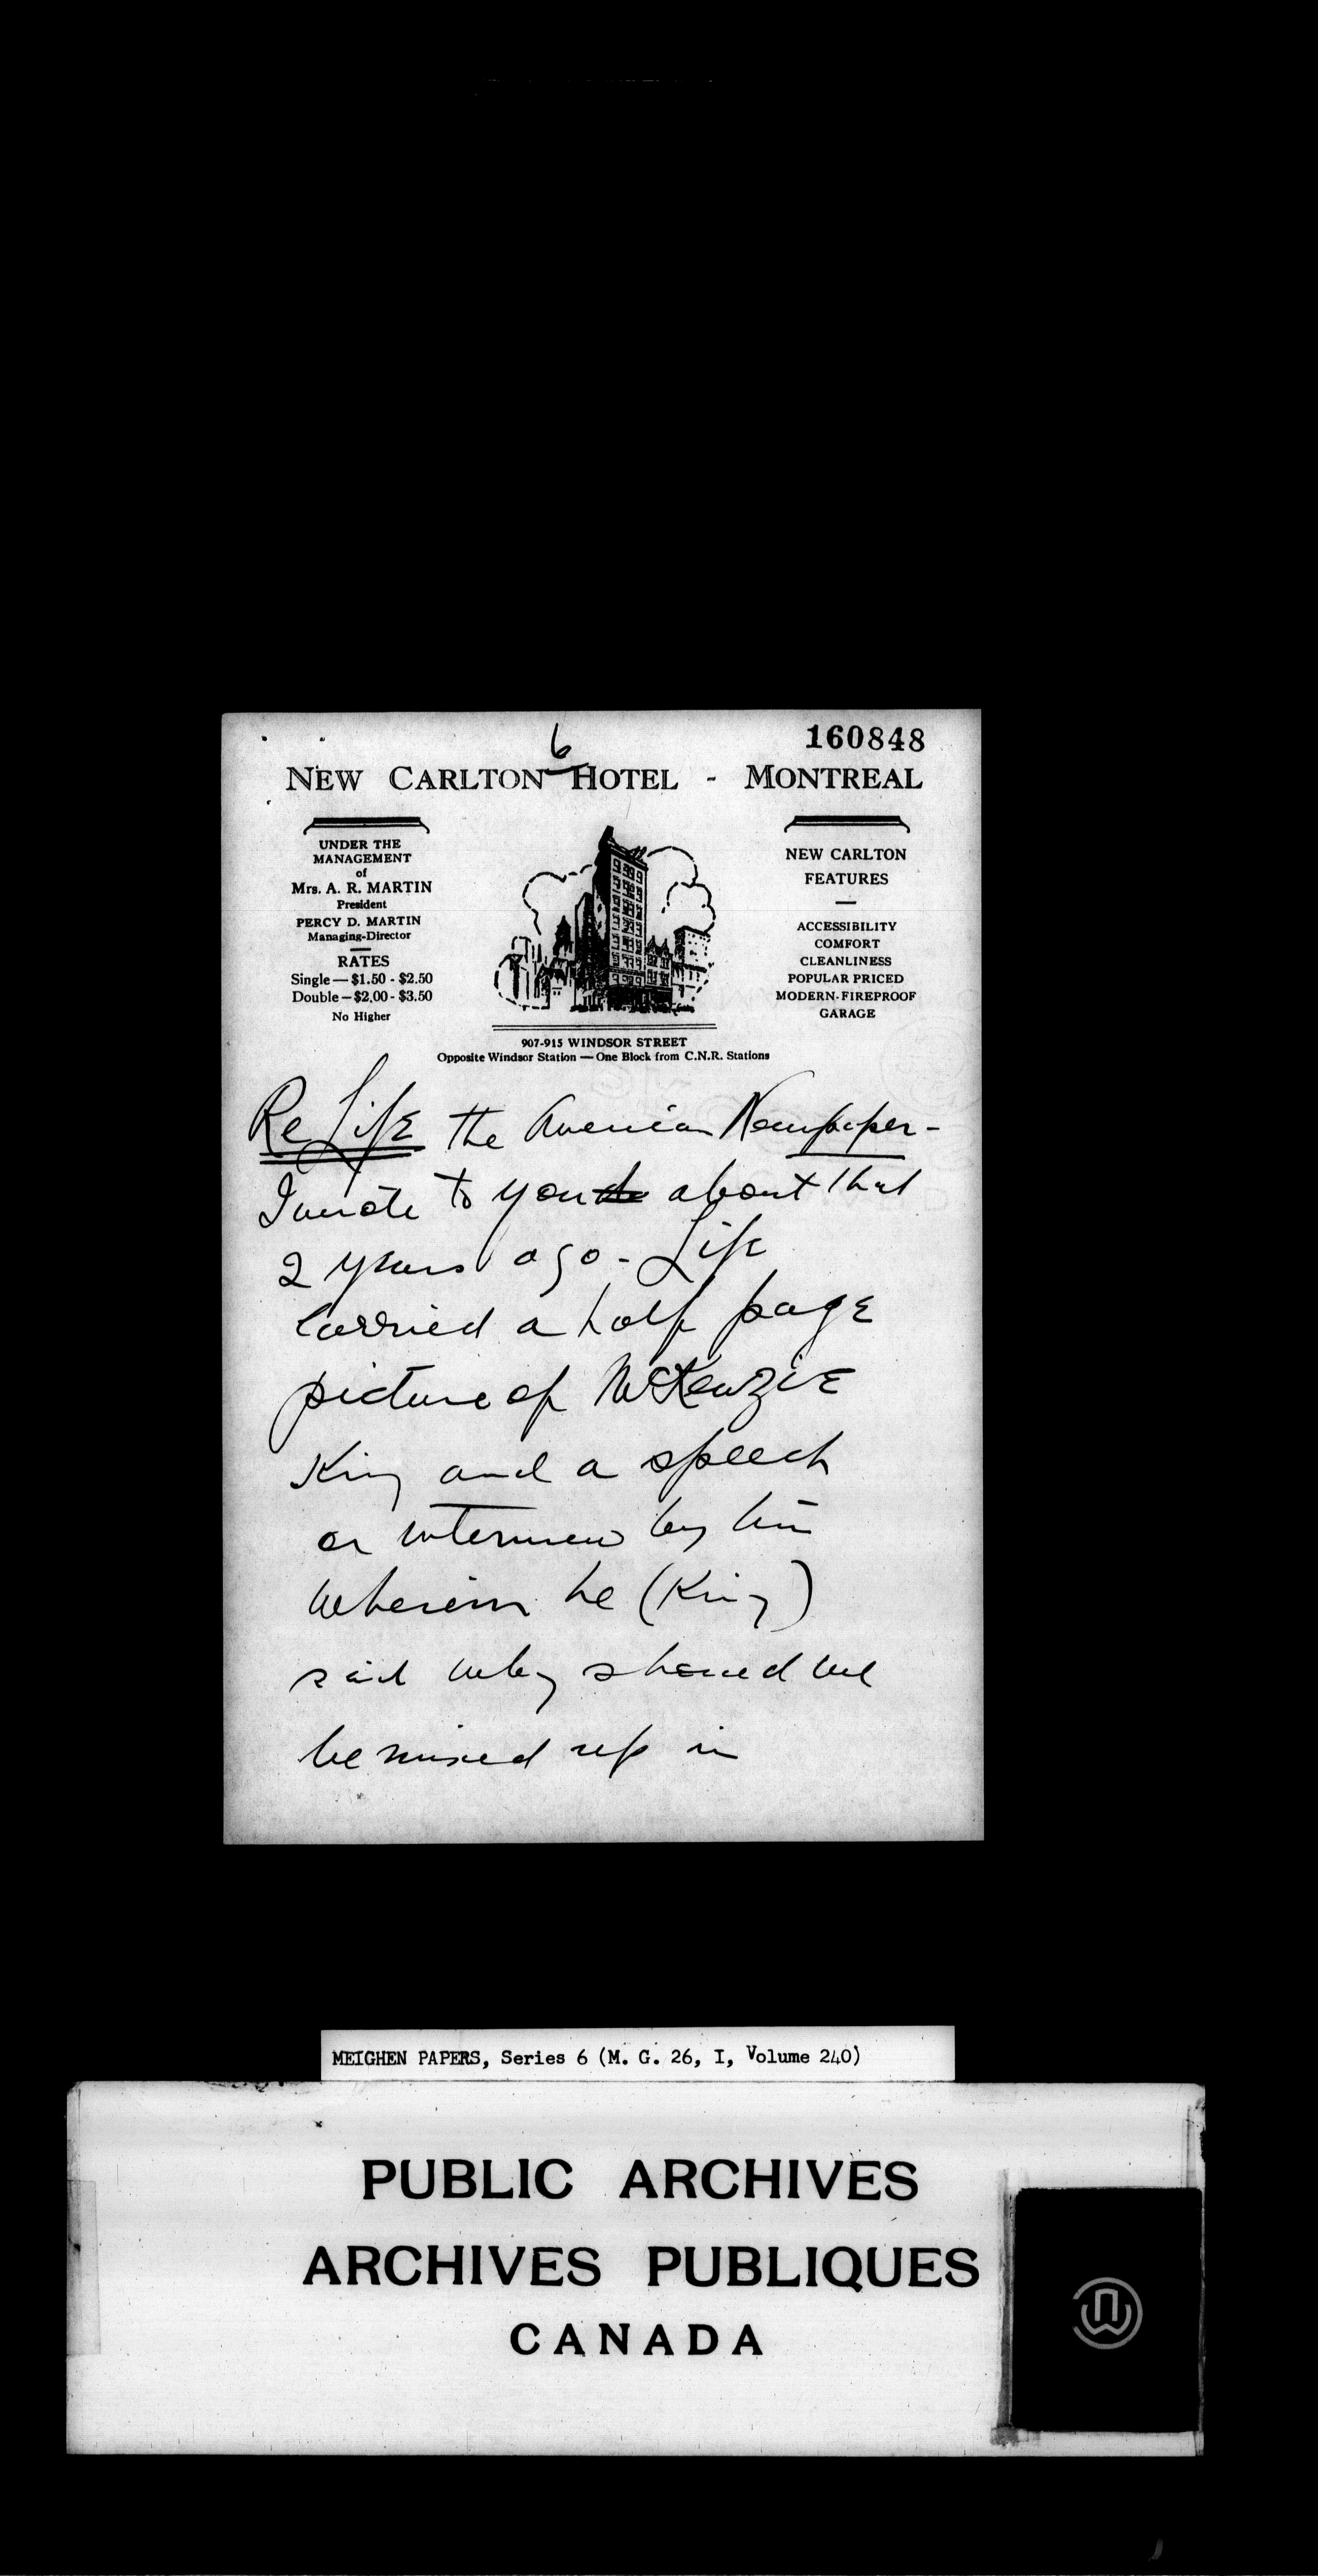 6
160848
NEW CARLTON HOTEL - MONTREAL
UNDER THE
MANAGEMENT
of
Mrs. A. R. MARTIN
President
PERCY D. MARTIN
Managing-Director
RATES
Single — $1.50 - $2.50
Double — $2.00 - $3.50
No Higher
NEW CARLTON
FEATURES
ACCESSIBILITY
COMFORT
CLEANLINESS
POPULAR PRICED
MODERN-FIREPROOF
GARAGE
907-915 WINDSOR STREET
Opposite Windsor Station — One Block from C.N.R. Stations
Re Life the American Newspaper -
I wrote to you about that
2 years ago - Life
carried a half page
picture of McKenzie
King and a speech
or interview by him
wherein he (King)
said why should we
be mixed up in
MEIGHEN PAPERS, Series 6 (M. G. 26, I, Volume 240)
PUBLIC ARCHIVES
ARCHIVES PUBLIQUES
CANADA